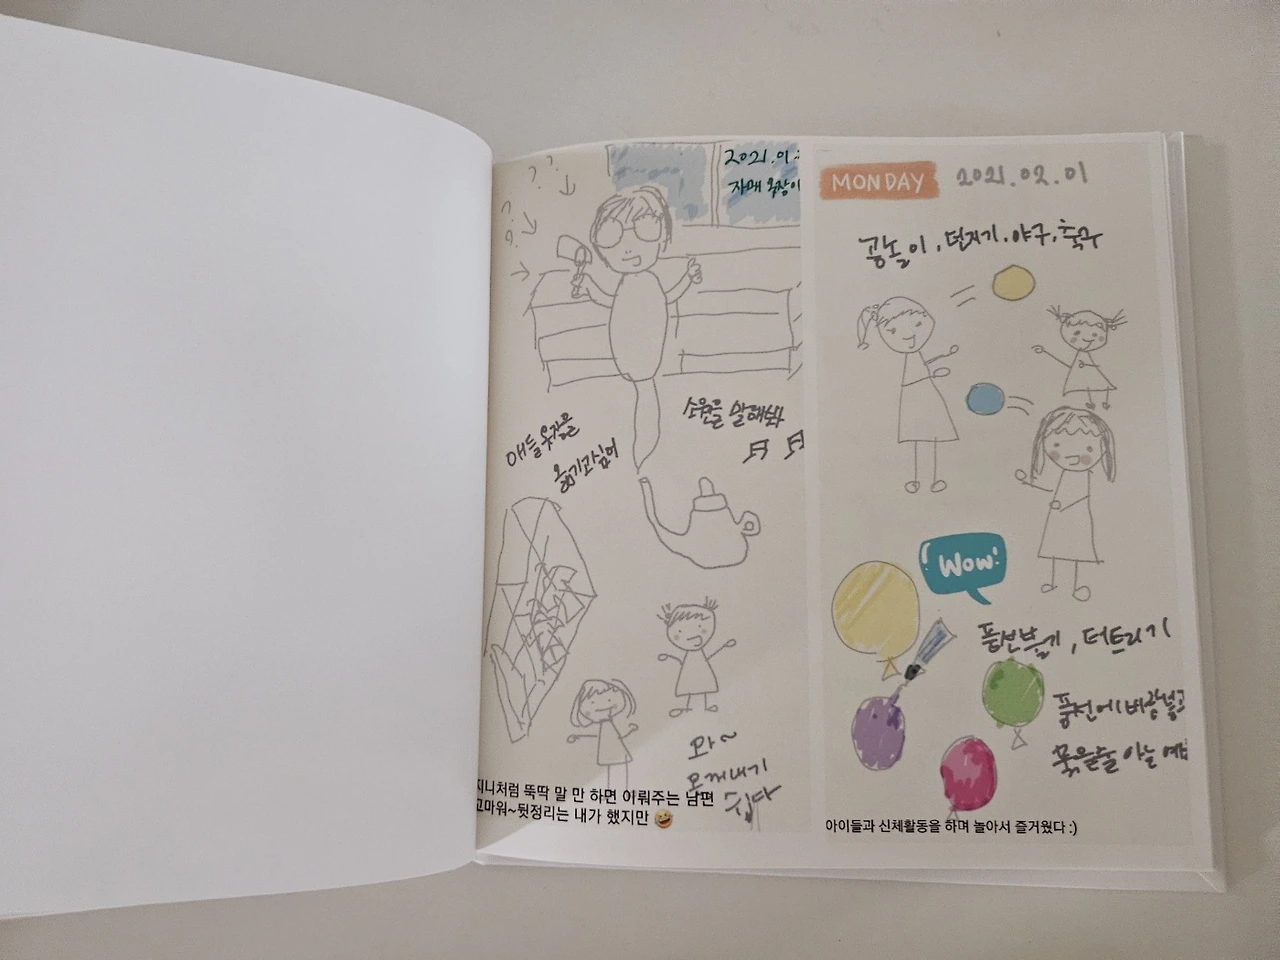 2021.01
자매 옷장이
애들 옷장을
옮기고싶어
소원을 말해봐
와~
모게내기
쉽다
지니처럼 뚝딱 말 만 하면 이뤄주는 남편
고마워~뒷정리는 내가 했지만 🤣
MONDAY 2021.02.01
공놀이, 던지기, 야구, 축구
Wow!
풍선불기, 터트리기
풍선에 바람넣고
묶을줄 아는 예
아이들과 신체활동을 하며 놀아서 즐거웠다 :)